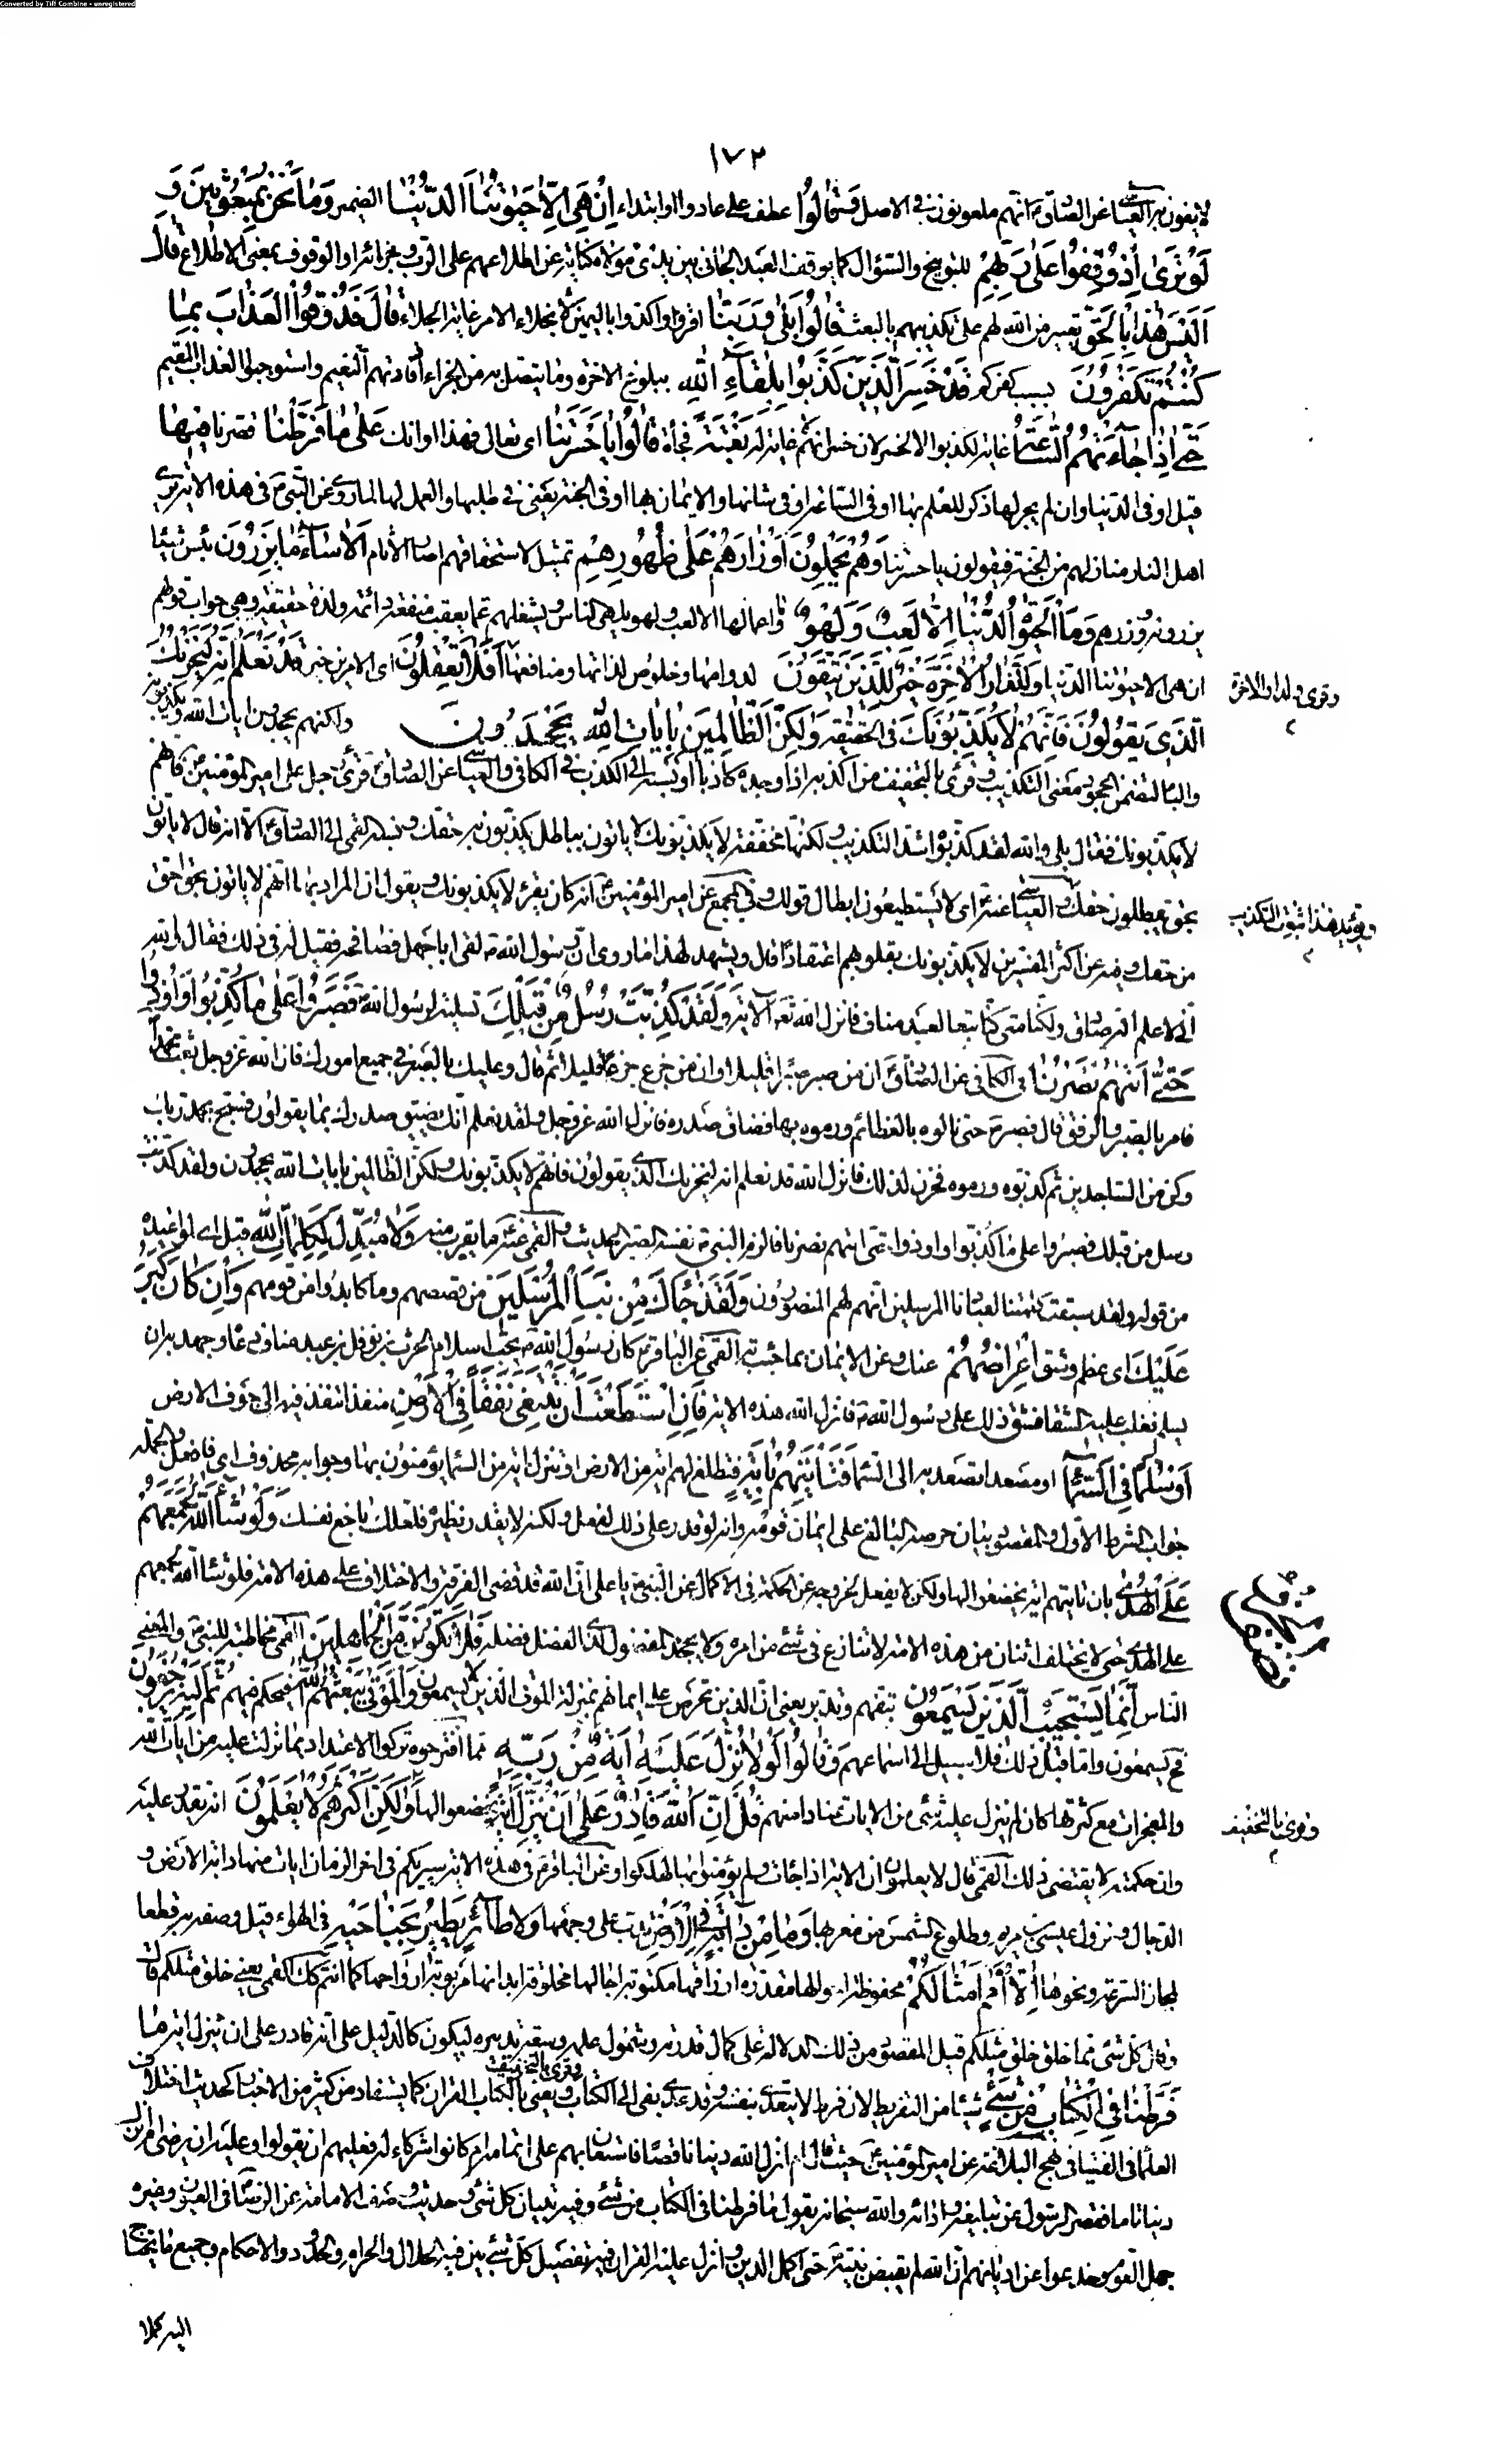 Converted by Tiff Combine - unregistered
١٧٣
لا يفون به العياشي عن الصادق ع انهم ملعونون في الاصل وَقالُوا عطف على عادوا او ابتداء اِنْ هِيَ اِلّا حَيٰوتُنَا الدُّنْيٰا الضمير وَمٰا نَحْنُ بِمَبْعُوثينَ وَ
لَوْ تَرىٰ اِذْ وُقِفُوا عَلىٰ رَبِّهِمْ للتوبيخ والسؤال كما يوقف العبد الجاني بين يدي مولاه كناية عن اطلاعهم على الرب وجزائه او الوقوف بمعنى الاطلاع قالَ
اَلَيْسَ هٰذٰا بِالْحَقِّ تعيير من الله لهم على تكذيبهم بالبعث قٰالُوا بَلىٰ وَرَبِّنٰا اقروا واكدوا باليمين لانجلاء الامر غاية الجلاء قالَ فَذُوقُوا الْعَذٰابَ بِمٰا
كُنْتُمْ تَكْفُرُونَ بسبب كفركم قَدْ خَسِرَ الَّذينَ كَذَّبُوا بِلِقٰاءِ اللهِ ببلوغ الاخرة وما يتصل به من الجزاء اذ فاتهم النعيم واستوجبوا العذاب المقيم
حَتّىٰ اِذٰا جٰاءَتْهُمُ السّٰاعَةُ غاية لكذبوا لا لخسر لان خسرانهم لا غاية له بَغْتَةً فجأة قٰالُوا يٰا حَسْرَتَنٰا اى تعالى فهذا اوانك عَلىٰ مٰا فَرَّطْنٰا قصرنا فيهٰا
قيل اى في الدنيا وان لم يجر لها ذكر للعلم بها او في الساعة اى في شانها والايمان بها او في الجنة يعني في طلبها والعمل لها لما روى عن النبي ص في هذه الاية يرى
اهل النار منازلهم من الجنة فيقولون يا حسرتنا وَهُمْ يَحْمِلُونَ اَوْزٰارَهُمْ عَلىٰ ظُهُورِهِمْ تمثيل لاستحقاقهم اصار الاثام اَلٰا سٰاءَ مٰا يَزِرُونَ بئس شيئا
يزرونه وزرهم وَمَا الْحَيٰوةُ الدُّنْيٰا اِلّٰا لَعِبٌ وَلَهْوٌ وما اعمالها الا لعب ولهو يلهي الناس ويشغلهم عما يعقب منفعة دائمة ولذة حقيقية وهي جواب قولهم
ان هي الا حيوتنا الدنيا وَلَلدّٰارُ الْاٰخِرَةُ خَيْرٌ لِلَّذينَ يَتَّقُونَ لدوامها وخلوص لذاتها ومنافعها اَفَلٰا تَعْقِلُونَ اى الامرين خير قَدْ نَعْلَمُ اِنَّهُ لَيَحْزُنُكَ
وقرئ ولدار الاخرة
الَّذي يَقُولُونَ فَاِنَّهُمْ لٰا يُكَذِّبُونَكَ في الحقيقة وَلٰكِنَّ الظّٰالِمينَ بِاٰيٰاتِ اللهِ يَجْحَدُونَ ولكنهم يجحدون بايات الله ويكذبونه
والباء لتضمن الجحود معنى التكذيب وقرئ بالتخفيف من اكذبه اذا وجده كاذبا او نسبه الى الكذب في الكافي والعياشي عن الصادق ع قرئ رجل على امير المؤمنين ع فانهم
لا يكذبونك فقال بلى والله لقد كذبوه اشد التكذيب ولكنها مخففة لا يكذبونك لا ياتون بباطل يكذبون به حقك ونسبه القمي الى الصادق ع الا انه قال لا ياتون
بحق يبطلون حقك والعياشي عنه ع اى لا يستطيعون ابطال قولك وفي المجمع عن امير المؤمنين ع انه كان يقرأ لا يكذبونك ويقول ان المراد بها انهم لا ياتون بحق احق
ويؤيد هذا ثبوت التكذيب
من حقك وفيه عن اكثر المفسرين لا يكذبونك بقلوبهم اعتقادا قال ويشهد لهذا ما روى ان رسول الله ص لقى ابا جهل فصافحه فقيل له في ذلك فقال والله
اني لاعلم انه صادق ولكنا متى كنا تبعا لعبد مناف فانزل الله تعالى الاية وَلَقَدْ كُذِّبَتْ رُسُلٌ مِنْ قَبْلِكَ تسلية لرسول الله ص فَصَبَرُوا عَلىٰ مٰا كُذِّبُوا وَاُوذُوا
حَتّىٰ اَتٰيهُمْ نَصْرُنٰا في الكافي عن الصادق ع ان من صبر صبر قليلا وان من جزع جزع قليلا ثم قال وعليك بالصبر في جميع امورك فان الله عز وجل بعث محمدا
فامره بالصبر والرفق قال فصبر ص حتى نالوه بالعظائم ورموه بها فضاق صدره فانزل الله عز وجل ولقد نعلم انك يضيق صدرك بما يقولون فسبح بحمد ربك
وكن من الساجدين ثم كذبوه ورموه فحزن لذلك فانزل الله قد نعلم انه ليحزنك الذي يقولون فانهم لا يكذبونك ولكن الظالمين بايات الله يجحدون ولقد كذبت
رسل من قبلك فصبروا على ما كذبوا واوذوا حتى اتيهم نصرنا فالزم النبي ص نفسه الصبر الحديث والقمي عنه ع ما يقرب منه وَلٰا مُبَدِّلَ لِكَلِمٰاتِ اللهِ قيل اى لمواعيده
من قوله ولقد سبقت كلمتنا لعبادنا المرسلين انهم لهم المنصورون وَلَقَدْ جٰاءَكَ مِنْ نَبَاِ الْمُرْسَلينَ من قصصهم وما كابدوا من قومهم وَاِنْ كٰانَ كَبُرَ
عَلَيْكَ اى عظم وشق اِعْرٰاضُهُمْ عنك وعن الايمان بما جئت به القمي عن الباقر ع كان رسول الله ص يحب اسلام الحرث بن نوفل بن عبد مناف دعاه وجهد به ان
يسلم فغلب عليه الشقا فشق ذلك على رسول الله ص فانزل الله هذه الاية فَاِنِ اسْتَطَعْتَ اَنْ تَبْتَغِيَ نَفَقًا فِي الْاَرْضِ منفذا تنفذ فيه الى جوف الارض
اَوْ سُلَّمًا فِي السَّمٰاءِ او مصعدا تصعد به الى السماء فَتَأْتِيَهُمْ بِاٰيَةٍ فتطلع لهم اية من الارض او تنزل اية من السماء يؤمنون بها وجوابه محذوف اى فافعل والجملة
جواب الشرط الاول والمقصود بيان حرصه البالغ على ايمان قومه وانه لو قدر على ذلك لفعل ولكنه لا يقدر نظيره فلعلك باخع نفسك وَلَوْ شٰاءَ اللهُ لَجَمَعَهُمْ
عَلَى الْهُدىٰ بان تاتيهم اية يخضعوا لها ولكن لا يفعل لخروجه عن الحكمة في الاكمال عن النبي ص يا علي ان الله قد قضى الفرقة والاختلاف على هذه الامة فلو شاء الله لجمعهم
على الهدى حتى لا يختلف اثنان من هذه الامة ولا تنازع في شئ من امره ولا يجحد المفضول لذي الفضل فضله فَلٰا تَكُونَنَّ مِنَ الْجٰاهِلينَ القمي مخاطبة للنبي ص والمعني
الناس اِنَّمٰا يَسْتَجيبُ الَّذينَ يَسْمَعُونَ بتفهم وتدبر يعني ان الذين تحرص على ايمانهم بمنزلة الموتى الذين لا يسمعون وَالْمَوْتىٰ يَبْعَثُهُمُ اللهُ فيحكم فيهم ثُمَّ اِلَيْهِ يُرْجَعُونَ
فح يسمعون واما قبل ذلك فلا سبيل الى اسماعهم وَقٰالُوا لَوْلٰا نُزِّلَ عَلَيْهِ اٰيَةٌ مِنْ رَبِّهِ مما اقترحوه تركوا الاعتداد بما نزلت عليه من ايات الله
والمعجزات مع كثرتها كان لم ينزل عليه شئ من الايات عنادا منهم قُلْ اِنَّ اللهَ قٰادِرٌ عَلىٰ اَنْ يُنَزِّلَ اٰيَةً يخضعوا لها وَلٰكِنَّ اَكْثَرَهُمْ لٰا يَعْلَمُونَ انه يقدر عليه
وقرئ بالتخفيف
وان حكمته لا يقتضي ذلك القمي قال لا يعلمون ان الاية اذا جاءت ولم يؤمنوا بها لهلكوا وعن الباقر ع في هذه الاية سيريكم في اخر الزمان ايات منها دابة الارض و
الدجال ونزول عيسى بن مريم وطلوع الشمس من مغربها وَمٰا مِنْ دٰابَّةٍ فِي الْاَرْضِ تدب على وجهها وَلٰا طٰائِرٍ يَطيرُ بِجَنٰاحَيْهِ في الهواء قيل وصفه به قطعا
لمجاز السرعة ونحوها اِلّٰا اُمَمٌ اَمْثٰالُكُمْ محفوظة احوالها مقدرة ارزاقها مكتوبة اجالها مخلوقة ابدانها مربوبة ارواحها كما انتم كك القمي يعني خلق مثلكم قال
وقال كل شئ مما خلق خلق مثلكم قيل المقصود من ذلك الدلالة على كمال قدرته وشمول علمه وسعة تدبيره ليكون كالدليل على انه قادر على ان ينزل اية مٰا
وقرئ بالتخفيف
فَرَّطْنٰا فِي الْكِتٰابِ مِنْ شَيْءٍ شيئا من التفريط لان فرط لا يتعدى بنفسه وقد عدي بفي الى الكتاب ويعني بالكتاب القران كما يستفاد من كثير من الاخبار كحديث اختلاف
العلماء في الفتيا في نهج البلاغة عن امير المؤمنين ع حيث قال ام انزل الله دينا ناقصا فاستعان بهم على اتمامه ام كانوا شركاء له فعليهم ان يقولوا وعليه ان يرضى ام انزل
دينا تاما فقصر الرسول عن تبليغه وادائه والله سبحانه يقول ما فرطنا في الكتاب من شئ وفيه تبيان كل شئ وحديث وصف الامامة عن الرضا ع في العيون وغيره
جهل القوم وخدعوا عن اديانهم ان الله لم يقبض نبيه ص حتى اكمل الدين وانزل عليه القران فيه تفصيل كل شئ بين فيه الحلال والحرام والحدود والاحكام وجميع ما يحتاج
اليه كملا